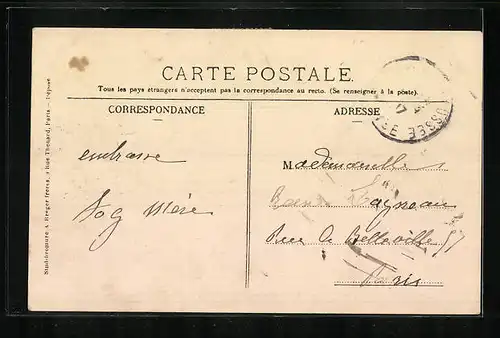 CARTE POSTALE.
Tous les pays étrangers n'acceptent pas la correspondance au recto. (Se renseigner à la poste).
CORRESPONDANCE
ADRESSE
embrasse
Mère
Mademoiselle
Rue de Belleville 57
Paris
Simili-Gravure A. Breger frères, 9 Rue Thénard, Paris - Déposé